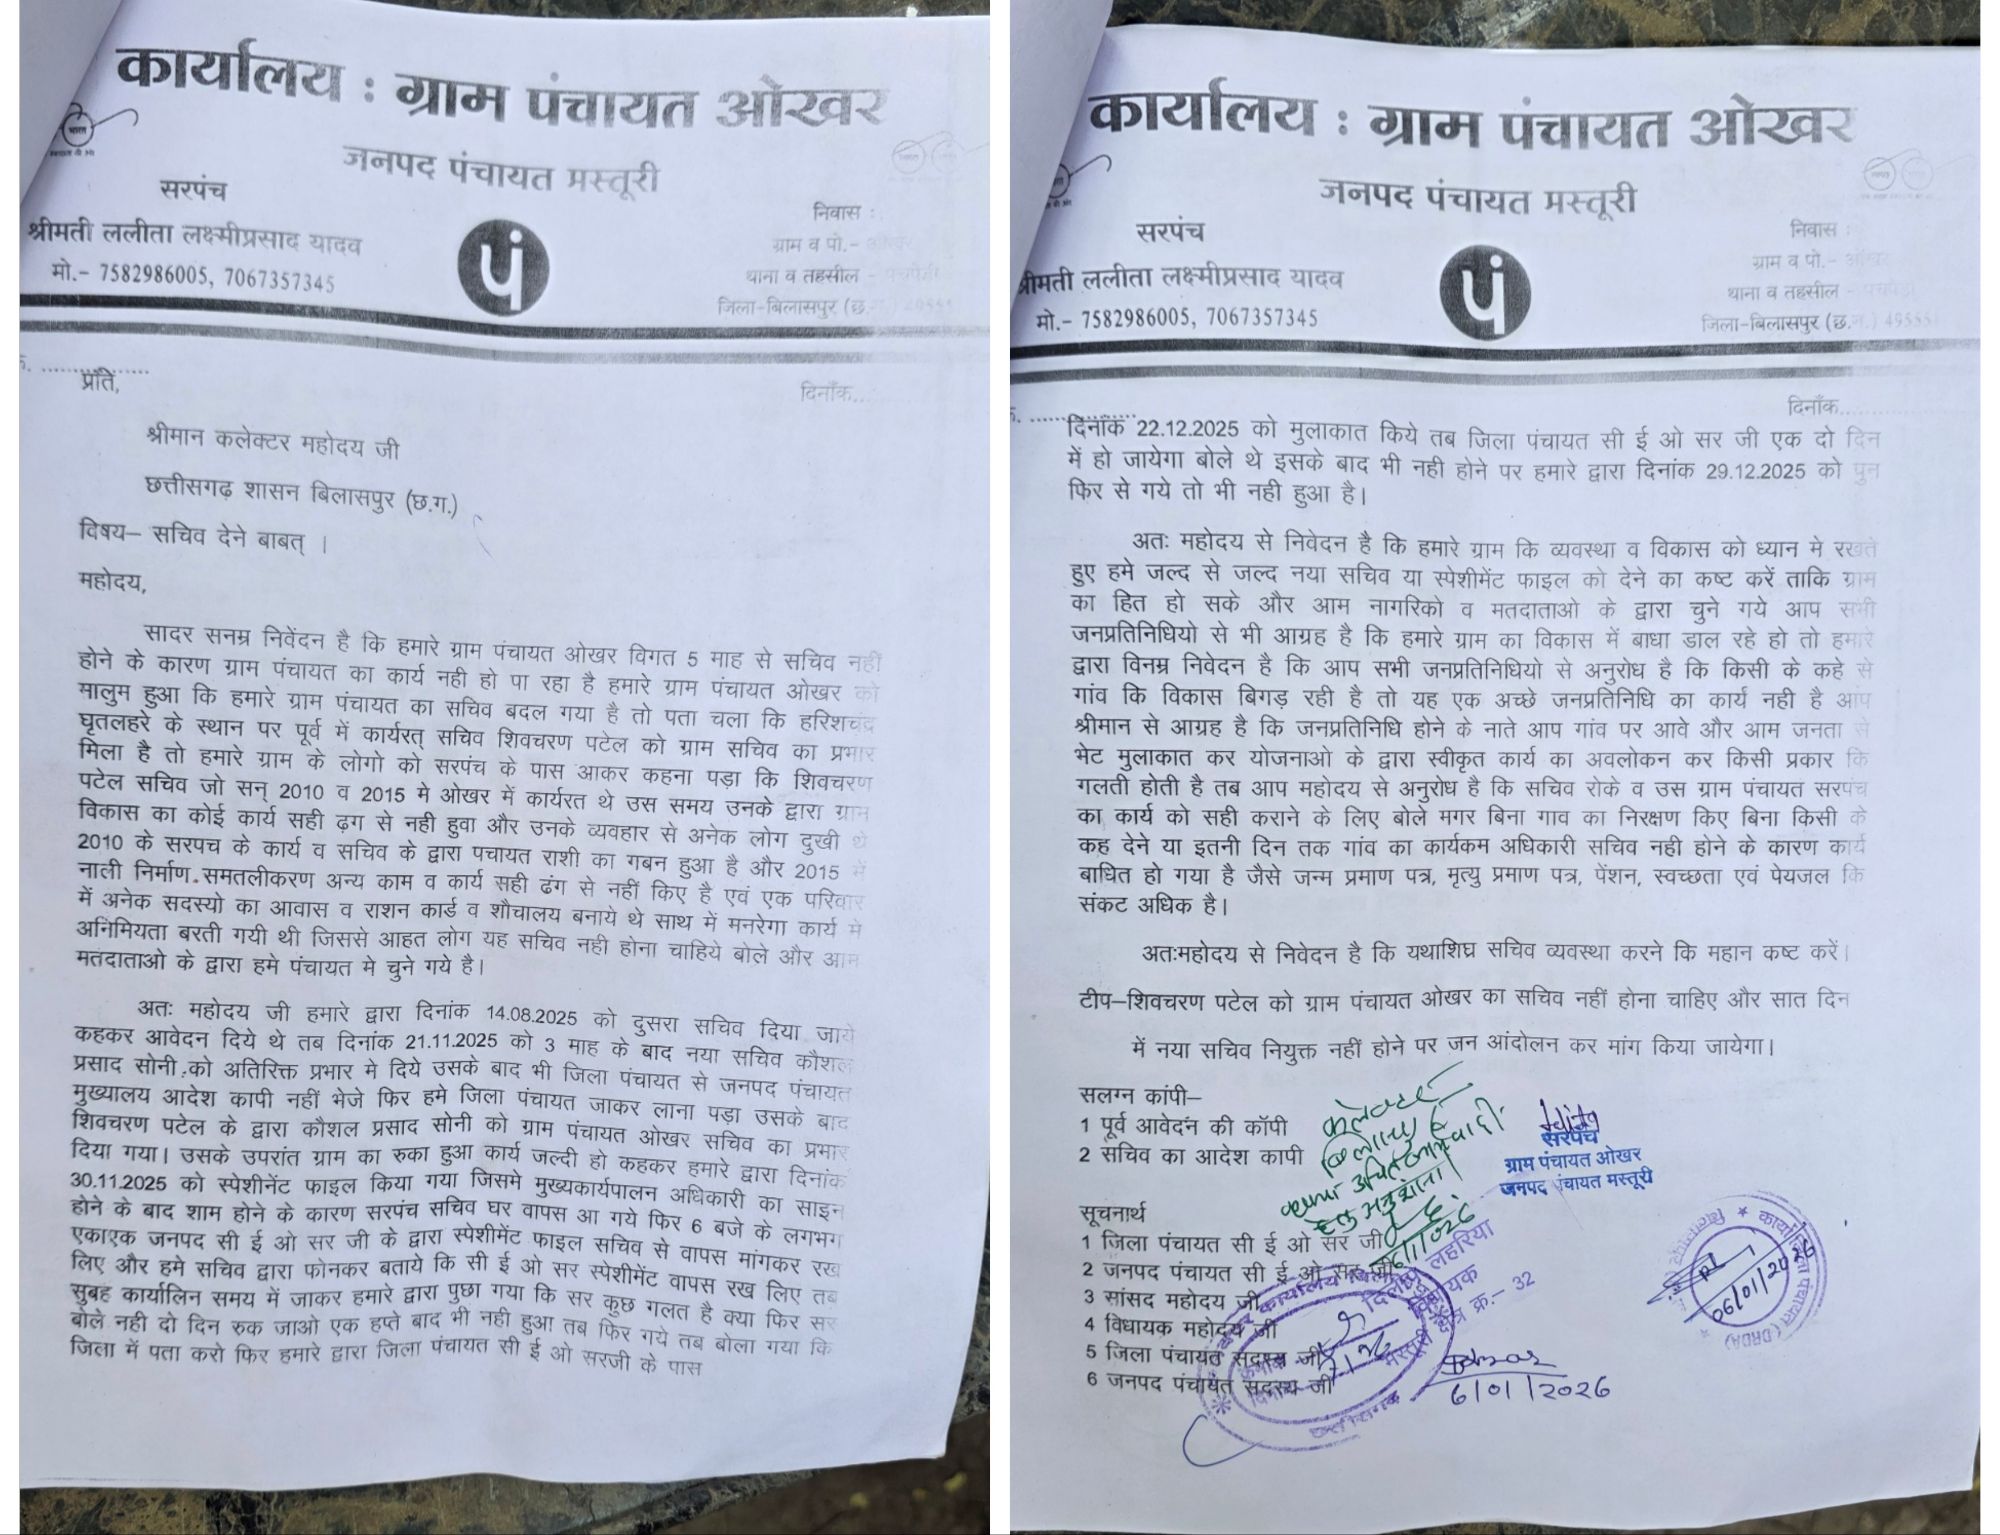 कार्यालय : ग्राम पंचायत ओखर
जनपद पंचायत मस्तूरी
सरपंच
श्रीमती ललीता लक्ष्मीप्रसाद यादव
मो.- 7582986005, 7067357345
पं
निवास :
ग्राम व पो.- ओखर
थाना व तहसील - पचपेड़ी
जिला-बिलासपुर (छ.ग.) 49555
प्रति,
दिनाँक...
श्रीमान कलेक्टर महोदय जी
छत्तीसगढ़ शासन बिलासपुर (छ.ग.)
विषय– सचिव देने बाबत् ।
महोदय,
सादर सनम्र निवेंदन है कि हमारे ग्राम पंचायत ओखर विगत 5 माह से सचिव नहीं
होने के कारण ग्राम पंचायत का कार्य नही हो पा रहा है हमारे ग्राम पंचायत ओखर को
मालुम हुआ कि हमारे ग्राम पंचायत का सचिव बदल गया है तो पता चला कि हरिशचंद्र
घृतलहरे के स्थान पर पूर्व में कार्यरत् सचिव शिवचरण पटेल को ग्राम सचिव का प्रभार
मिला है तो हमारे ग्राम के लोगो को सरपंच के पास आकर कहना पड़ा कि शिवचरण
पटेल सचिव जो सन् 2010 व 2015 मे ओखर में कार्यरत थे उस समय उनके द्वारा ग्राम
विकास का कोई कार्य सही ढ़ग से नही हुवा और उनके व्यवहार से अनेक लोग दुखी थे
2010 के सरपच के कार्य व सचिव के द्वारा पचायत राशी का गबन हुआ है और 2015 में
नाली निर्माण.समतलीकरण अन्य काम व कार्य सही ढंग से नहीं किए है एवं एक परिवार
में अनेक सदस्यो का आवास व राशन कार्ड व शौचालय बनाये थे साथ में मनरेगा कार्य मे
अनिमियता बरती गयी थी जिससे आहत लोग यह सचिव नही होना चाहिये बोले और आम
मतदाताओ के द्वारा हमे पंचायत मे चुने गये है।
अतः महोदय जी हमारे द्वारा दिनांक 14.08.2025 को दुसरा सचिव दिया जाये
कहकर आवेदन दिये थे तब दिनांक 21.11.2025 को 3 माह के बाद नया सचिव कौशल
प्रसाद सोनी को अतिरिक्त प्रभार मे दिये उसके बाद भी जिला पंचायत से जनपद पंचायत
मुख्यालय आदेश कापी नहीं भेजे फिर हमे जिला पंचायत जाकर लाना पड़ा उसके बाद
शिवचरण पटेल के द्वारा कौशल प्रसाद सोनी को ग्राम पंचायत ओखर सचिव का प्रभार
दिया गया। उसके उपरांत ग्राम का रुका हुआ कार्य जल्दी हो कहकर हमारे द्वारा दिनांक
30.11.2025 को स्पेशीनेंट फाइल किया गया जिसमे मुख्यकार्यपालन अधिकारी का साइन
होने के बाद शाम होने के कारण सरपंच सचिव घर वापस आ गये फिर 6 बजे के लगभग
एकाएक जनपद सी ई ओ सर जी के द्वारा स्पेशीमेंट फाइल सचिव से वापस मांगकर रख
लिए और हमे सचिव द्वारा फोनकर बताये कि सी ई ओ सर स्पेशीमेंट वापस रख लिए तब
सुबह कार्यालिन समय में जाकर हमारे द्वारा पुछा गया कि सर कुछ गलत है क्या फिर सर
बोले नही दो दिन रुक जाओ एक हप्ते बाद भी नही हुआ तब फिर गये तब बोला गया कि
जिला में पता करो फिर हमारे द्वारा जिला पंचायत सी ई ओ सरजी के पास
कार्यालय : ग्राम पंचायत ओखर
जनपद पंचायत मस्तूरी
सरपंच
श्रीमती ललीता लक्ष्मीप्रसाद यादव
मो.- 7582986005, 7067357345
पं
निवास :
ग्राम व पो.- ओखर
थाना व तहसील - पचपेड़ी
जिला-बिलासपुर (छ.ग.) 49555
दिनाँक...
दिनांक 22.12.2025 को मुलाकात किये तब जिला पंचायत सी ई ओ सर जी एक दो दिन
में हो जायेगा बोले थे इसके बाद भी नही होने पर हमारे द्वारा दिनांक 29.12.2025 को पुन
फिर से गये तो भी नही हुआ है।
अतः महोदय से निवेदन है कि हमारे ग्राम कि व्यवस्था व विकास को ध्यान मे रखते
हुए हमे जल्द से जल्द नया सचिव या स्पेशीमेंट फाइल को देने का कष्ट करें ताकि ग्राम
का हित हो सके और आम नागरिको व मतदाताओ के द्वारा चुने गये आप सभी
जनप्रतिनिधियो से भी आग्रह है कि हमारे ग्राम का विकास में बाधा डाल रहे हो तो हमारे
द्वारा विनम्र निवेदन है कि आप सभी जनप्रतिनिधियो से अनुरोध है कि किसी के कहे से
गांव कि विकास बिगड़ रही है तो यह एक अच्छे जनप्रतिनिधि का कार्य नही है आप
श्रीमान से आग्रह है कि जनप्रतिनिधि होने के नाते आप गांव पर आवे और आम जनता से
भेट मुलाकात कर योजनाओ के द्वारा स्वीकृत कार्य का अवलोकन कर किसी प्रकार कि
गलती होती है तब आप महोदय से अनुरोध है कि सचिव रोके व उस ग्राम पंचायत सरपंच
का कार्य को सही कराने के लिए बोले मगर बिना गाव का निरक्षण किए बिना किसी के
कह देने या इतनी दिन तक गांव का कार्यकम अधिकारी सचिव नही होने के कारण कार्य
बाधित हो गया है जैसे जन्म प्रमाण पत्र, मृत्यु प्रमाण पत्र, पेंशन, स्वच्छता एवं पेयजल कि
संकट अधिक है।
अतःमहोदय से निवेदन है कि यथाशिघ्र सचिव व्यवस्था करने कि महान कष्ट करें।
टीप–शिवचरण पटेल को ग्राम पंचायत ओखर का सचिव नहीं होना चाहिए और सात दिन
में नया सचिव नियुक्त नहीं होने पर जन आंदोलन कर मांग किया जायेगा।
सलग्न कांपी–
1 पूर्व आवेदन की कॉपी
2 सचिव का आदेश कापी
कलेक्टर
बिलासपुर
कृपया उचित कार्यवाही
हेतु अनुशंसा।
सरपंच
ग्राम पंचायत ओखर
जनपद पंचायत मस्तूरी
सूचनार्थ
1 जिला पंचायत सी ई ओ सर जी
2 जनपद पंचायत सी ई ओ सर जी
3 सांसद महोदय जी
4 विधायक महोदय जी
5 जिला पंचायत सदस्य जी
6 जनपद पंचायत सदस्य जी
दिलीप लहरिया
विधायक
मस्तूरी क्षेत्र क्र.– 32
छत्तीसगढ़
कार्यालय जिला पंचायत (DRDA) बिलासपुर
06/01/2026
6/01/2026